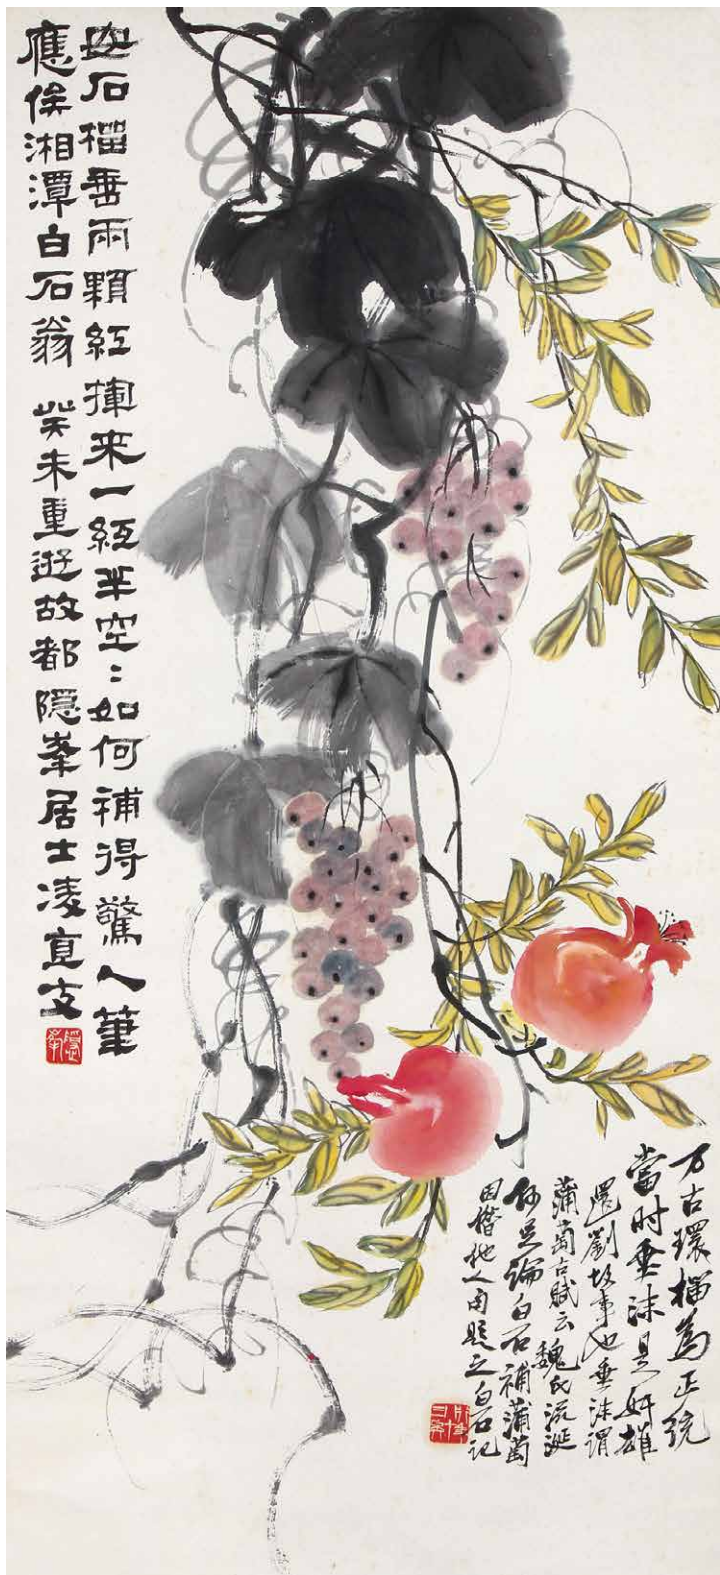 此石榴垂兩顆紅揮來一紙半空〻如何補得驚人筆
應俟湘潭白石翁 癸未重遊故都隱峯居士凌直支
隱峯
万古環榴為正統
當时垂沫是奸雄
還劉故事也垂沫謂
蒲萄古賦云魏氏流涎
何足論白石補蒲萄
因借他人句題之白石記